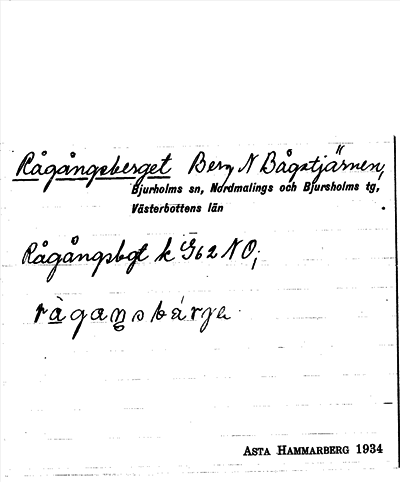 Rågångsberget Berg N Bågstjärnen,
Bjurholms sn, Nordmalings och Bjursholms tg,
Västerbottens län
Rågångsbgt k G62NO,
ràgaŋsbárjə
ASTA HAMMARBERG 1934